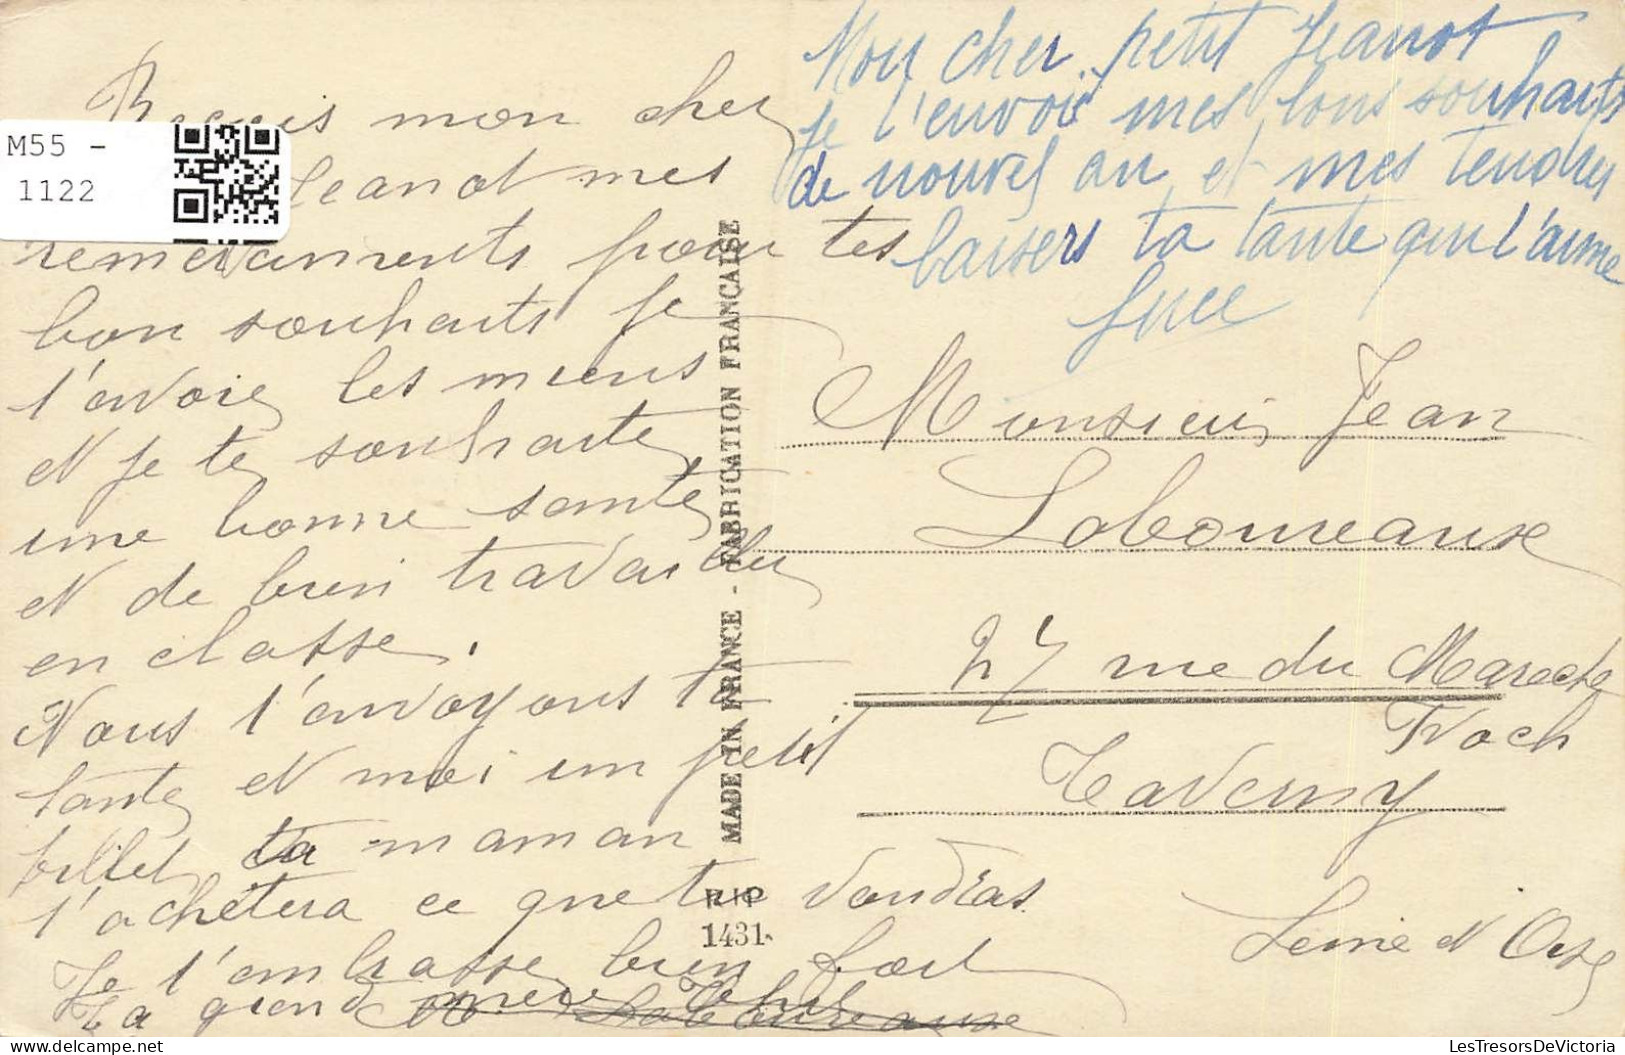 Reçois mon cher
Jeanot mes
remerciements pour tes
bon souhaits je
t'envoie les miens
et je te souhaite
une bonne sante
et de bien travailler
en classe.
Nous t'envoyons ta
tante et moi un petit
billet ta maman
t'achétera ce que tu voudras
Je t'embrasse bien fort
Ta grand mère
Laboureause
Mon cher petit Jeanot
Je t'envoi mes bons souhaits
de nouvel an et mes tendres
baisers ta tante qui t'aime
Luce
Monsieur Jean
Laboureause
27 rue du Marechal
Foch
Taverny
Seine et Oise
MADE IN FRANCE - FABRICATION FRANÇAISE
1431
M55 -
1122
LesTresorsDeVictoria
www.delcampe.net